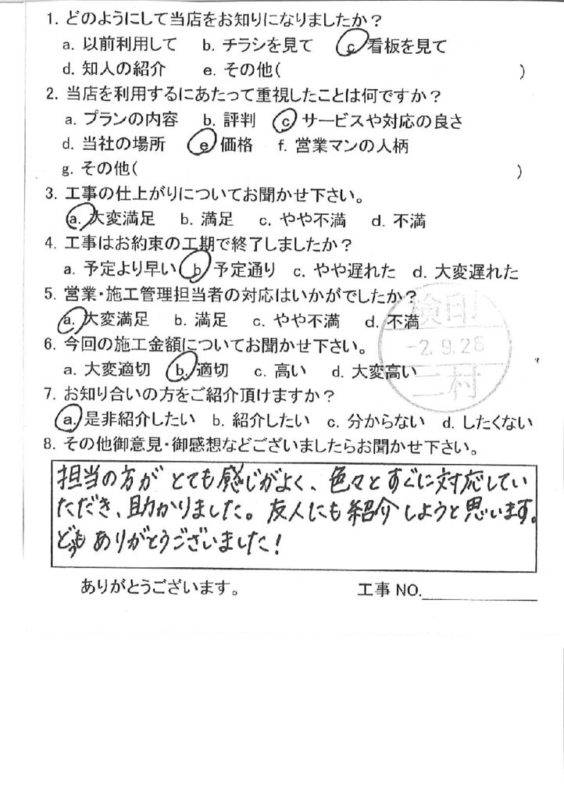 1. どのようにして当店をお知りになりましたか？
a. 以前利用して　b. チラシを見て　c 看板を見て
d. 知人の紹介　e. その他(　　　)
2. 当店を利用するにあたって重視したことは何ですか？
a. プランの内容　b. 評判　c サービスや対応の良さ
d. 当社の場所　e 価格　f. 営業マンの人柄
g. その他(　　　)
3. 工事の仕上がりについてお聞かせ下さい。
a. 大変満足　b. 満足　c. やや不満　d. 不満
4. 工事はお約束の工期で終了しましたか？
a. 予定より早い　b 予定通り　c. やや遅れた　d. 大変遅れた
5. 営業・施工管理担当者の対応はいかがでしたか？
a. 大変満足　b. 満足　c. やや不満　d. 不満
検印
-2.9.28
二村
6. 今回の施工金額についてお聞かせ下さい。
a. 大変適切　b. 適切　c. 高い　d. 大変高い
7. お知り合いの方をご紹介頂けますか？
a. 是非紹介したい　b. 紹介したい　c. 分からない　d. したくない
8. その他御意見・御感想などございましたらお聞かせ下さい。
担当の方が とても感じがよく、色々とすぐに対応してい
ただき、助かりました。友人にも紹介しようと思います。
どうもありがとうございました！
ありがとうございます。　工事 NO.